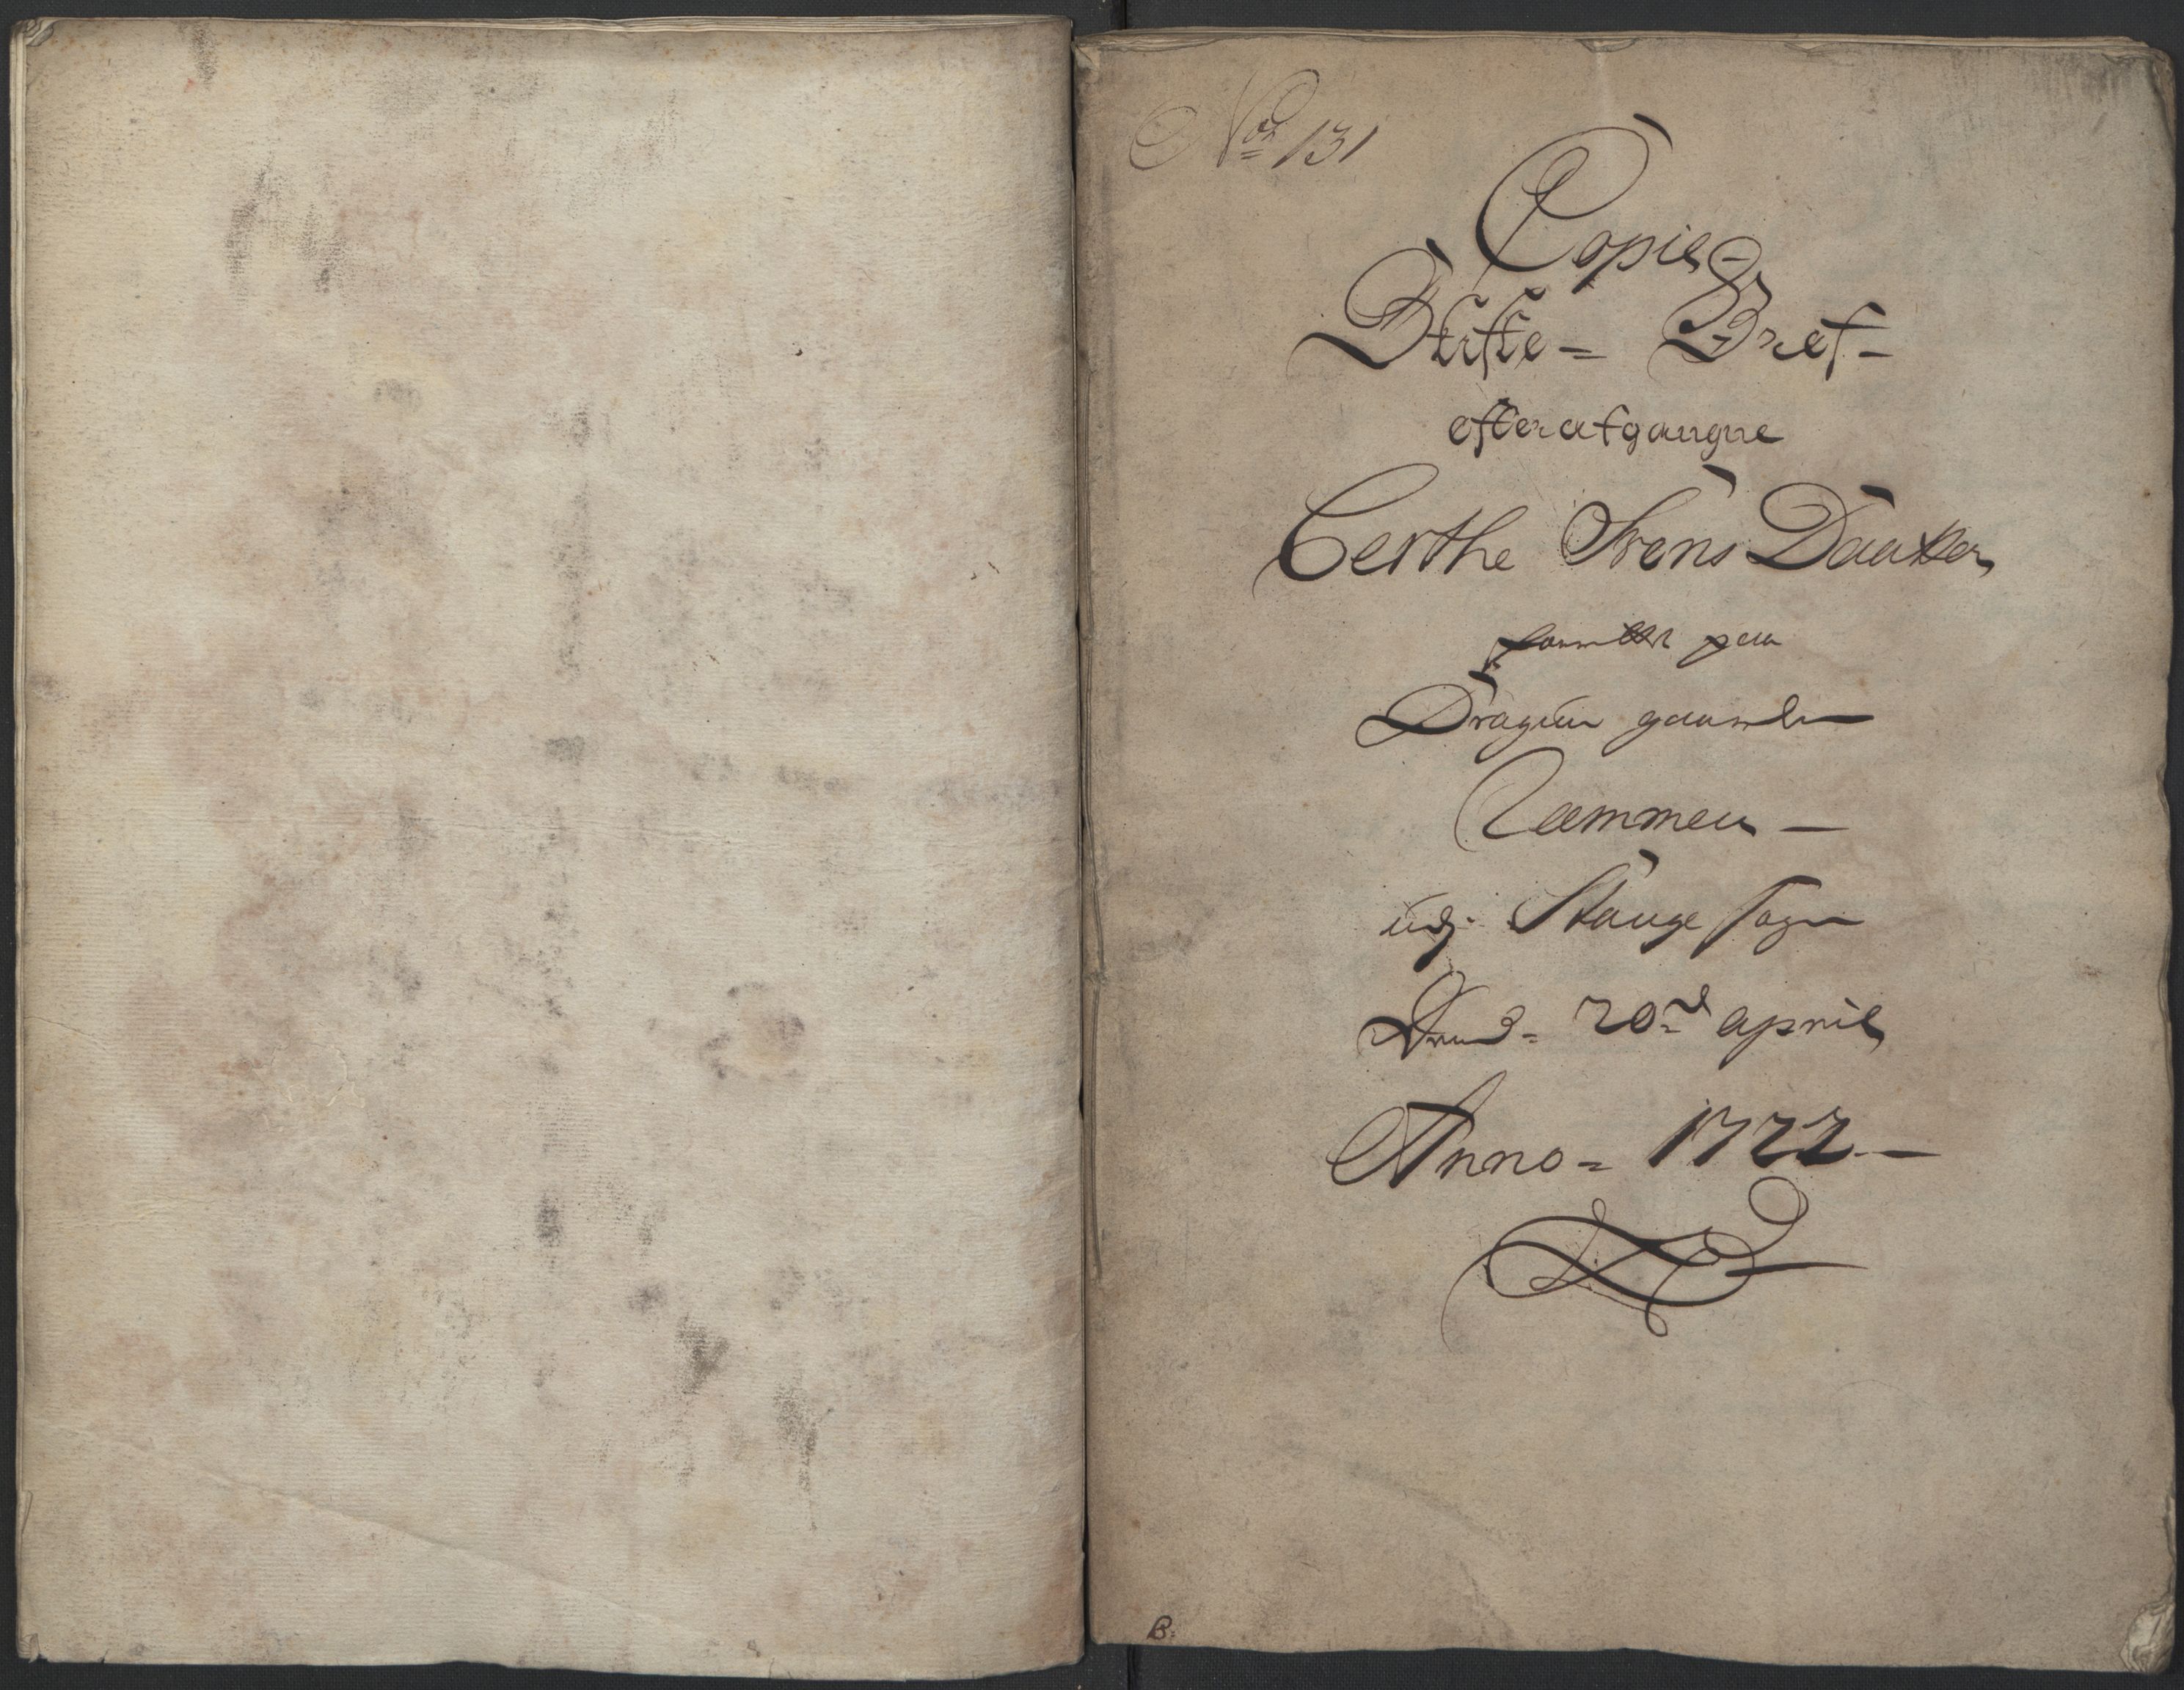 No 131
Copie
Skifte = Bref -
efter afgangne
Berthe Svens Daatter
paa
Dragun gaarden
Rammen -
udj Stange Sogn
Dend = 20 april
Anno = 1722 -
B: